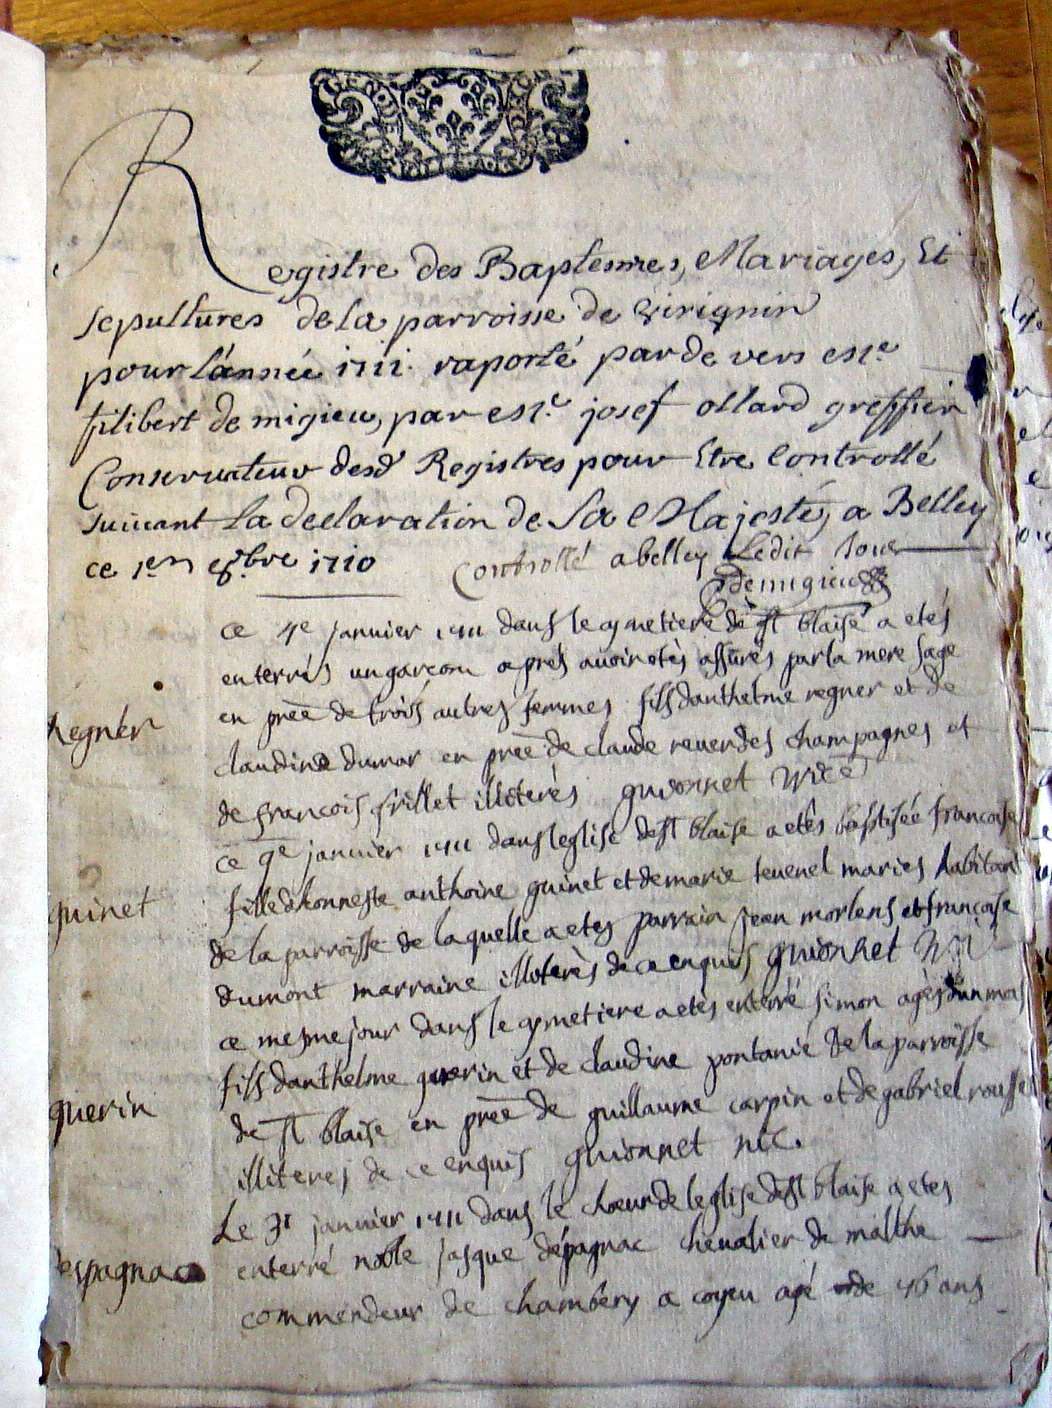 Registre des Baptesmes, Mariages, Et
sepultures de la parroisse de virignin
pour l'année 1711. raporté par de vers esre
filibert de migieu, par esre josef ollard greffier
Conservateur desd Registres pour Etre Controllé
suivant La declaration de Sa Majesté, a Belley
ce 1en 8bre 1710 Controllé a belley Ledit Jour
demigieu
ce 4e janvier 1711 dans le cymetiere de st blaise a etés
enterrés un garcom aprés avoir etès assurés par la mere sage
en pree de trois autres femmes fils danthelme regner et de
Regner
claudine dumar en pree de claude reverdes champagnes et
de francois frillet illiterés guionnet vice
ce 9e janvier 1711 dans leglise de st blaise a etés baptisée francoise
guinet
fille dhonneste anthoine guinet et de marie tevenel mariés habitans
de la parroisse de laquelle a etes parrain jean morlens et francoise
dumont marraine illiterès de ce enquis guionnet
ce mesme jour dans le cymetiere a etes enterré simon agès dun mois
fils danthelme guerin et de claudine pontanie de la parroisse
guerin
de st blaise en pree de guillaume carpin et de gabriel rousset
illiteres de ce enquis guionnet vic.
Le 31 janvier 1711 dans le chœur de leglise de st blaise a etes
enterré noble jasque dépagnac chevalier de malthe
espagnac
commendeur de chambery a coyeu agé de 46 ans